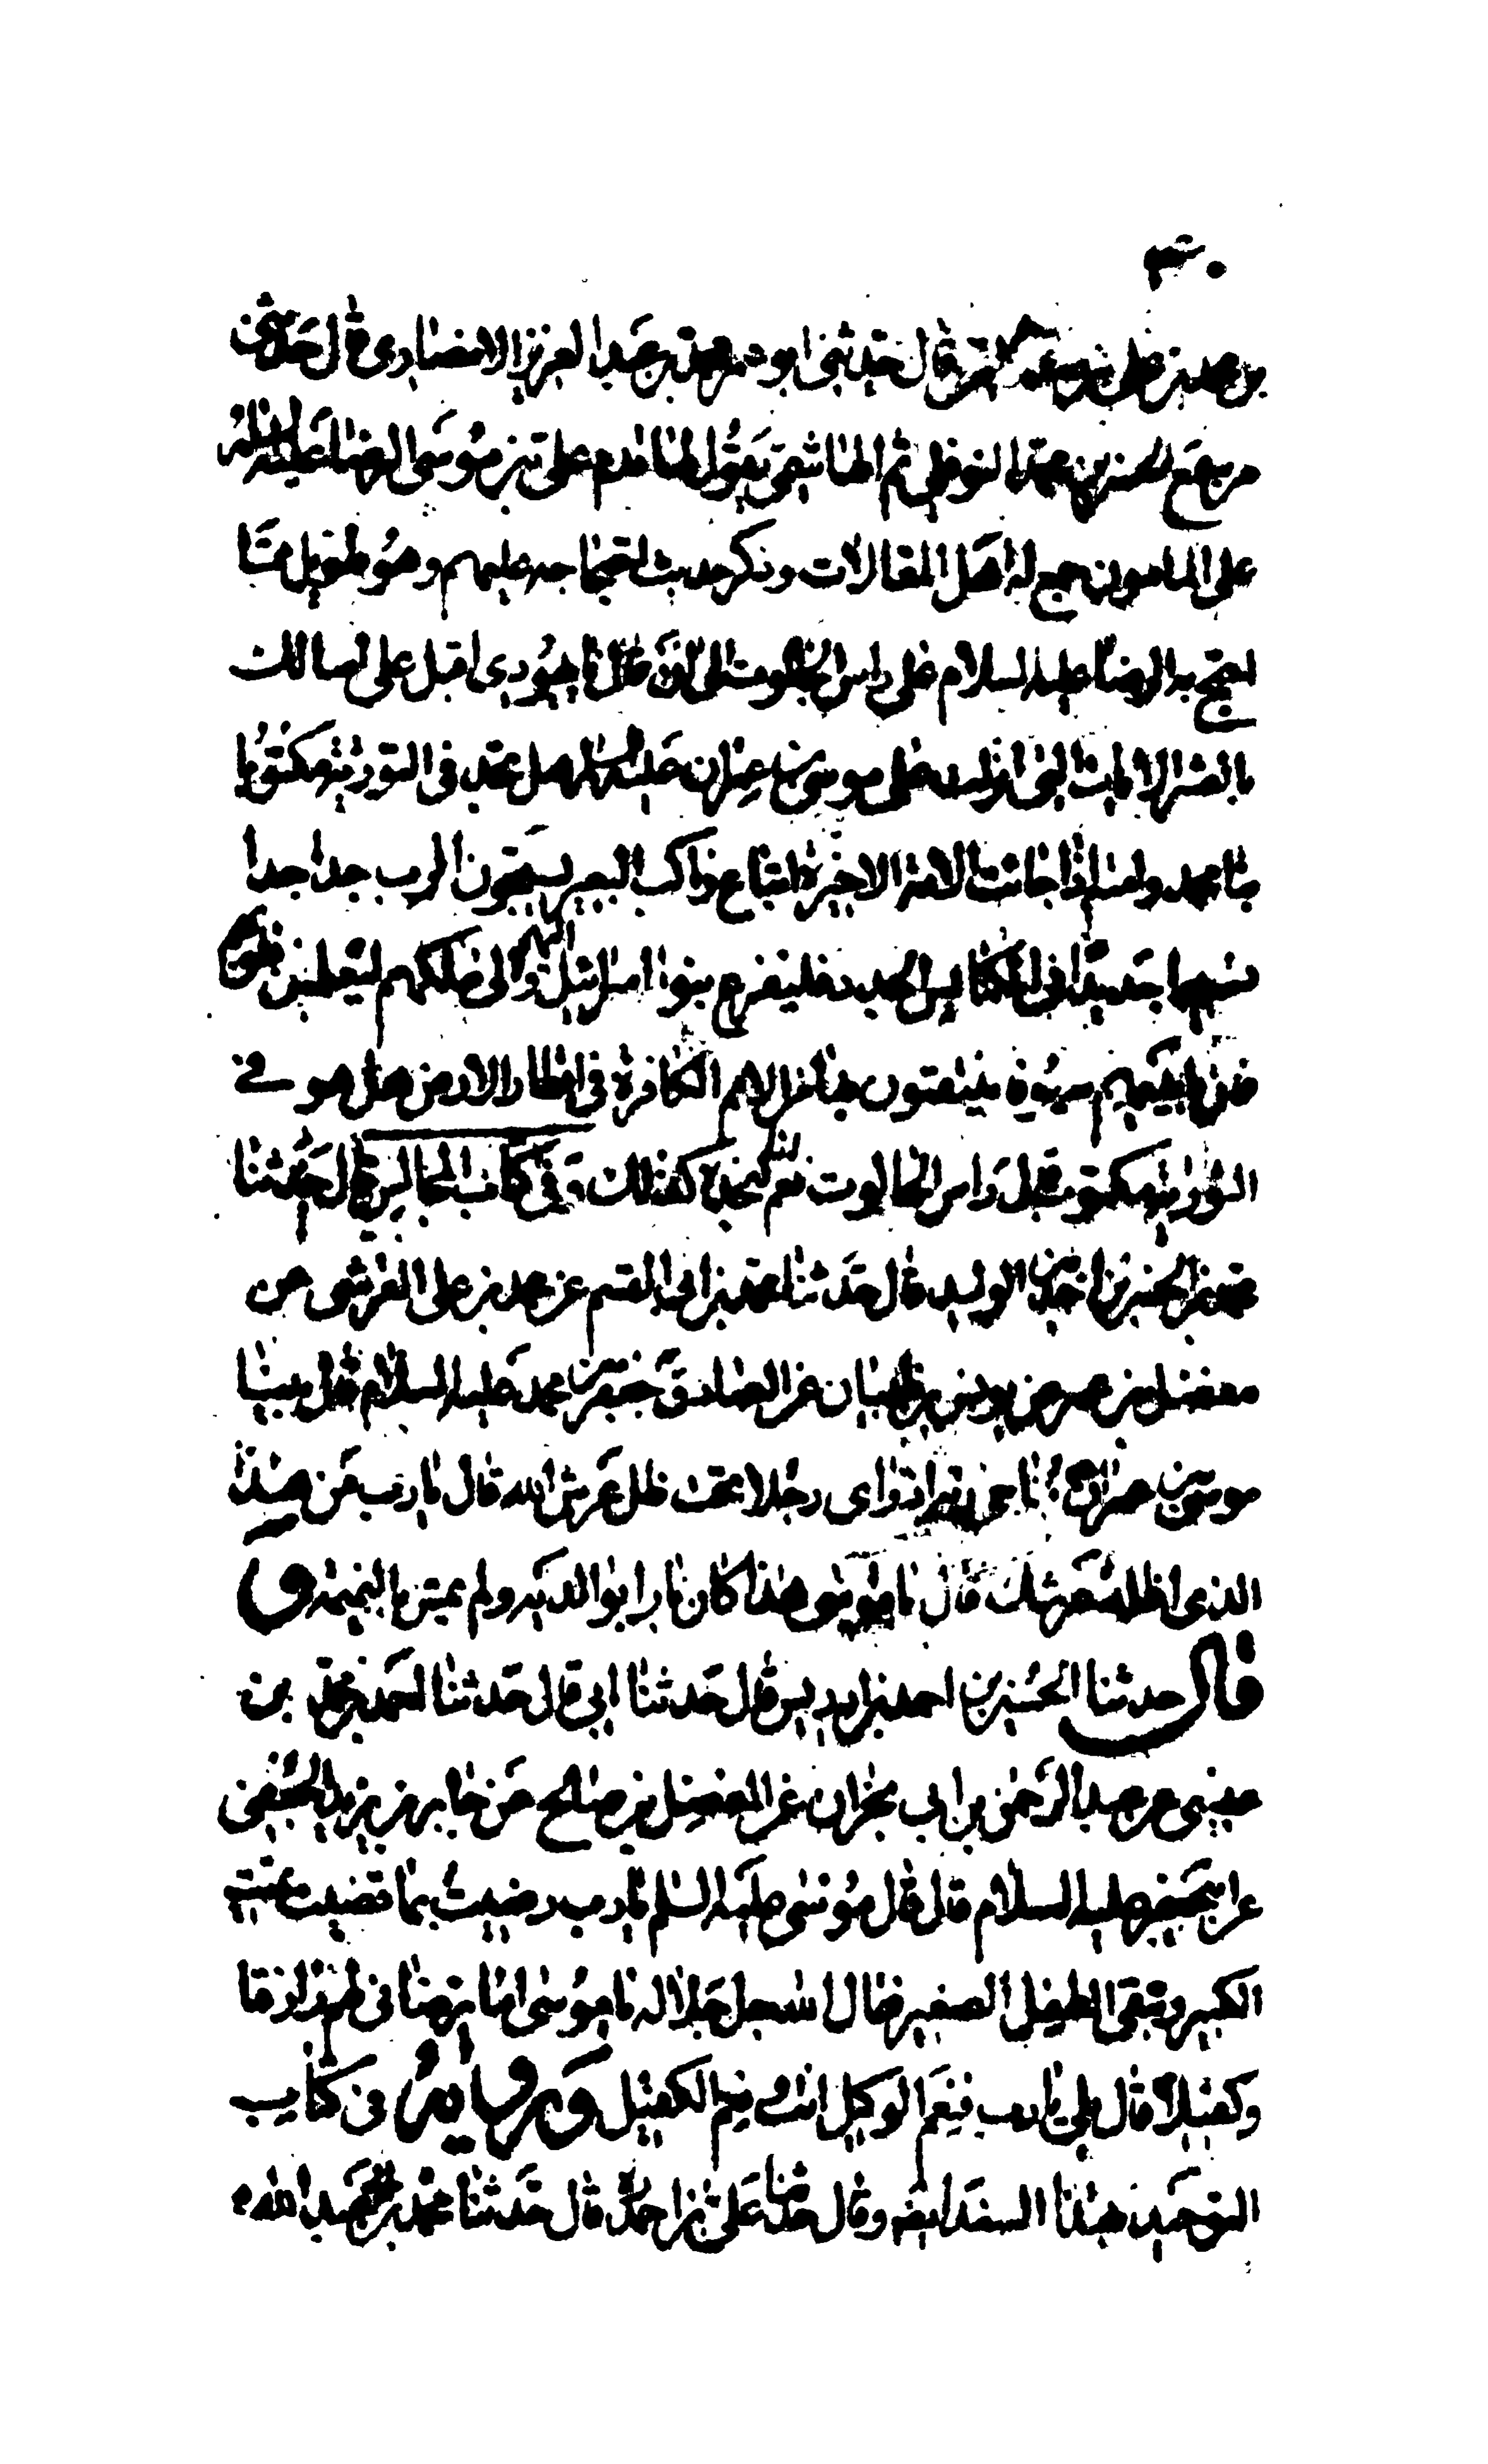 ٣٠
بن محمد بن علي بن صدقة القمي قال حدثني ابو عمرو محمد بن عبد العزيز الانصاري قال حدثني
من سمع الحسن بن محمد النوفلي ثم الهاشمي يقول لما قدم علي بن موسى الرضا عليه السلام
على المامون جمع له اهل المقالات وذكر حديث احتجاجه عليهم وهو طويل مما
احتج به الرضا عليه السلام على راس الجالوت الى ان قال يا يهودي اقبل علي اسالك
بالعشر الايات التي انزلت على موسى بن عمران عليه السلام هل تجد في التورية مكتوبا
نبا محمد وامته اذا جائت الامة الاخيرة اتباع راكب البعير يسبحون الرب جدا جدا
تسبيحا جديدا في الكنايس الجدد فليفرغ بنوا اسرائيل اليهم والى ملكهم لتطمئن قلوبهم
فان بايديهم سيوفا ينتقمون بها من الامم الكافرة في اقطار الارض هل هو في
التورية مكتوب قال راس الجالوت نعم انا لنجده كذلك وفي كتاب المجالس قال حدثنا
محمد بن الحسن بن احمد بن الوليد قال حدثنا محمد بن ابي القسم عن محمد بن علي القرشي عن
معن
عن الصادق جعفر بن محمد عليه السلام قال بينا
موسى بن عمران يناجي ربه اذ راى رجلا تحت ظل عرش الله قال يا رب من هذا
الذي اظله عرشك قال يا موسى هذا كان بارا بوالديه ولم يمش بالنميمة و
قال حدثنا الحسين بن احمد بن ادريس قال حدثنا ابي قال حدثنا احمد بن محمد بن
عيسى عن عبد الرحمن بن ابي نجران عن المفضل بن صالح عن جابر بن يزيد الجعفي
عن ابي جعفر عليه السلام قال قال موسى عليه السلم يا رب رضيت بما قضيت تميت
الكبير وتبقى الطفل الصغير فقال الله جل جلاله يا موسى اما ترضاني لهم رازقا
وكفيلا قال بلى يا رب فنعم الوكيل انت ونعم الكفيل ورواه في كتاب
التوحيد بهذا السند ايضا وقال حدثنا علي بن احمد قال حدثنا محمد بن ابي عبد الله